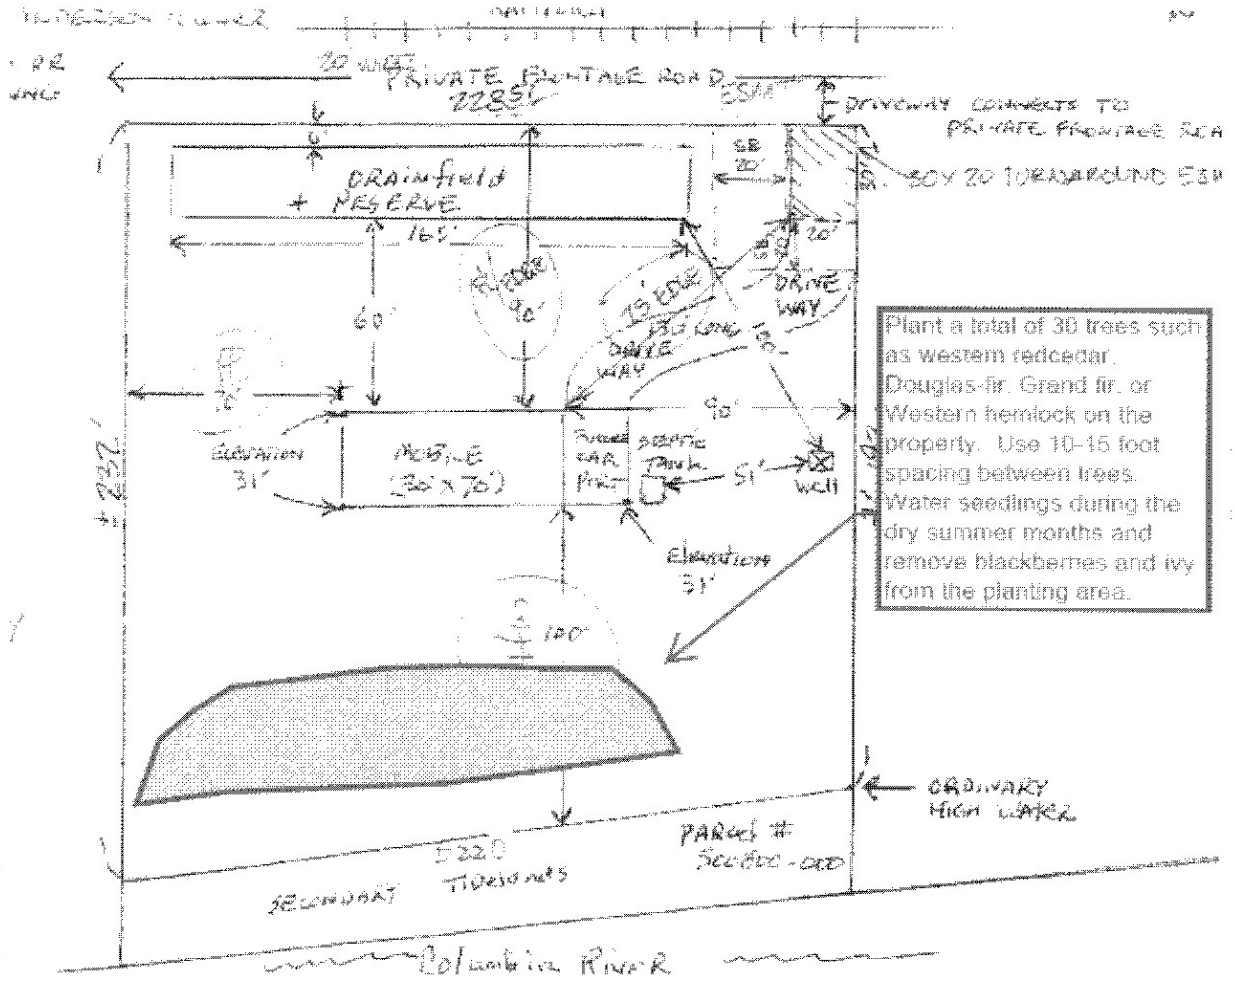 20' WIDE
PRIVATE FRONTAGE ROAD
ESMT
DRIVEWAY CONNECTS TO
PRIVATE FRONTAGE ROA
50 X 20 TURNAROUND ESM
SB
20'
DRAINfield
+ RESERVE
165'
20'
DRIVE
WAY
EDGE
90'
60'
15 EDGE
130' LONG
DRIVE
WAY
90'
ELEVATION
31'
MOBILE
(30' X 70')
CAR
PORT
SEPTIC
TANK
51'
well
± 237'
ELEVATION
31'
100'
Plant a total of 30 trees such
as western redcedar,
Douglas-fir, Grand fir, or
Western hemlock on the
property. Use 10-15 foot
spacing between trees.
Water seedlings during the
dry summer months and
remove blackberries and ivy
from the planting area.
ORDINARY
HIGH WATER
PARCEL #
500800-000
SECONDARY
Tidelands
Columbia RIVER